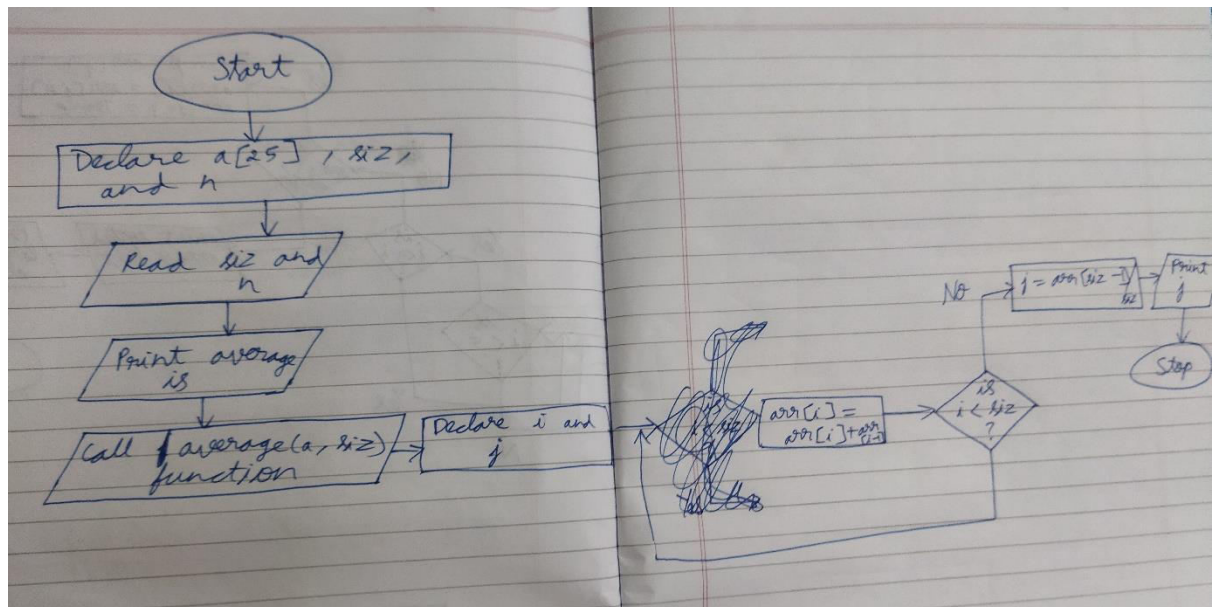 Start
Declare a[25], siz,
and n
Read siz and
n
Print average
is
Call average(a, siz)
function
Declare i and
j
arr[i] =
arr[i]+arr
[i-1]
is
i < siz
?
No
j = arr[siz-1]/
siz
Print
j
Stop